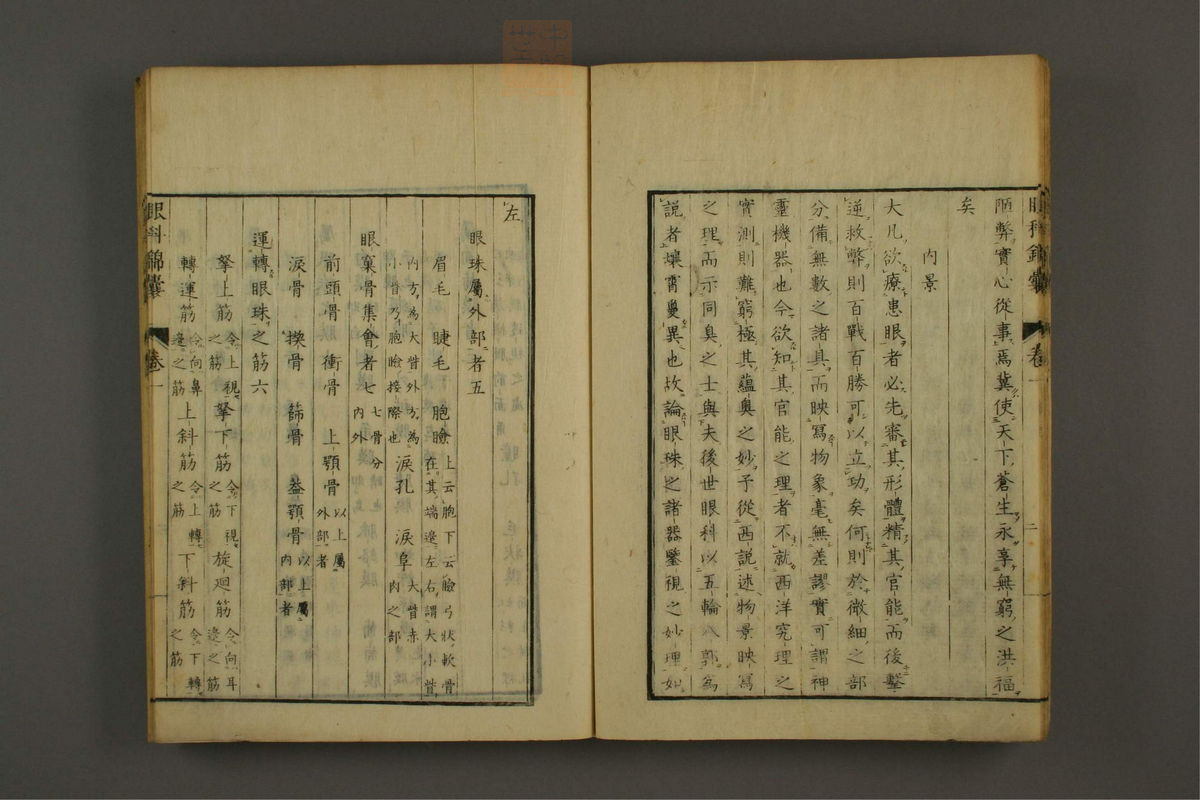 陋弊實心從事焉冀使天下蒼生永享無窮之洪福
矣
內景
大凡欲療患眼者必先審其形體精其官能而後擊
逆救弊則百戰百勝可以立功矣何則於微細之部
分備無數之諸具而映寫物象毫無差謬實可謂神
靈機器也今欲知其官能之理者不就西洋究理之
實測則難窮極其蘊奧之妙予從西說述物景映寫
之理而示同臭之士與夫後世眼科以五輪八郭為
說者壤霄夐異也故論眼珠之諸器鑒視之妙理如
左
眼珠屬外部者五
眉毛 睫毛 胞瞼 上云胞下云瞼弓狀軟骨
在其端邊左右謂大小眥
內方為大眥外方為
小眥乃胞瞼接際也 淚孔 淚阜 大眥赤
內之部
眼窠骨集會者七 七骨分
內外
前頭骨 衝骨 上顎骨 以上屬
外部者
淚骨 楔骨 篩骨 蓋顎骨 以上屬
內部者
運轉眼珠之筋六
拏上筋 令上視
之筋 拏下筋 令下視
之筋 旋廻筋 令向耳
邊之筋
轉運筋 令向鼻
邊之筋 上斜筋 令上轉
之筋 下斜筋 令下轉
之筋
眼科錦囊 卷一